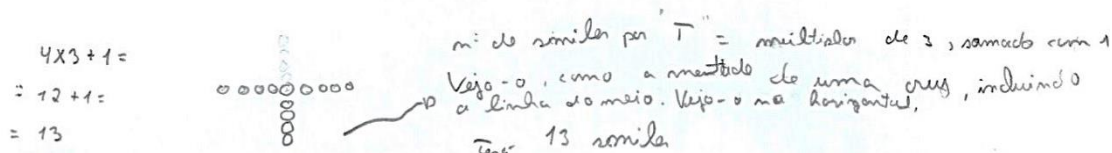 4x3+1=
= 12+1=
= 13
nº de smiles por "T" = múltiplos de 3, somado com 1
Vejo-o, como a metade de uma cruz, incluindo
a linha do meio. Vejo-o na horizontal.
13 smiles